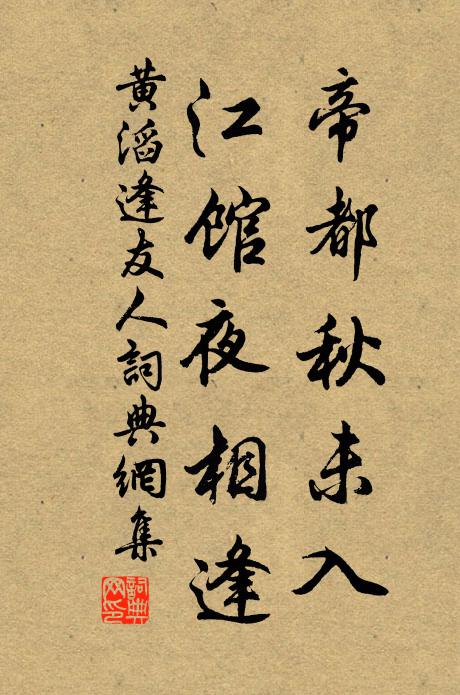 帝都秋未入
江館夜相逢
黃滔逢友人詞典網集
詞典網印